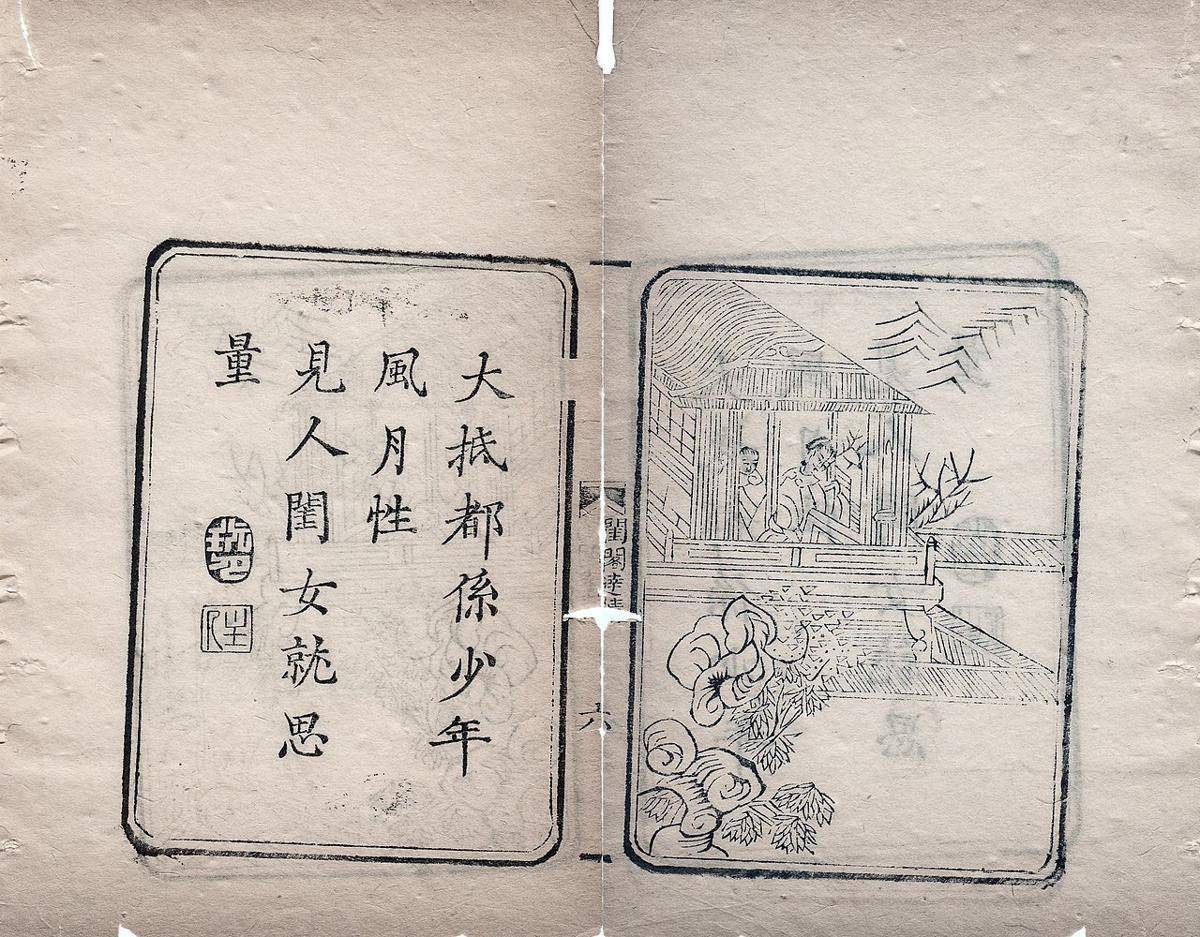 大抵都係少年
風月性
見人閨女就思
量
閨閣
六